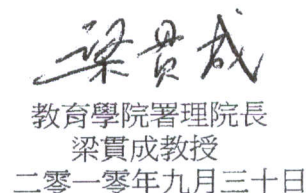 梁貫成
教育學院署理院長
梁貫成教授
二零一零年九月三十日